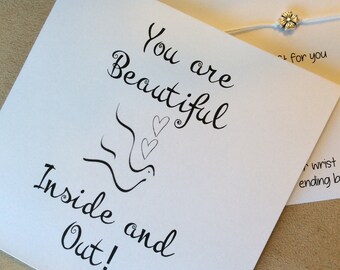 You are
Beautiful
Inside and
Out!
for you
wrist
ending